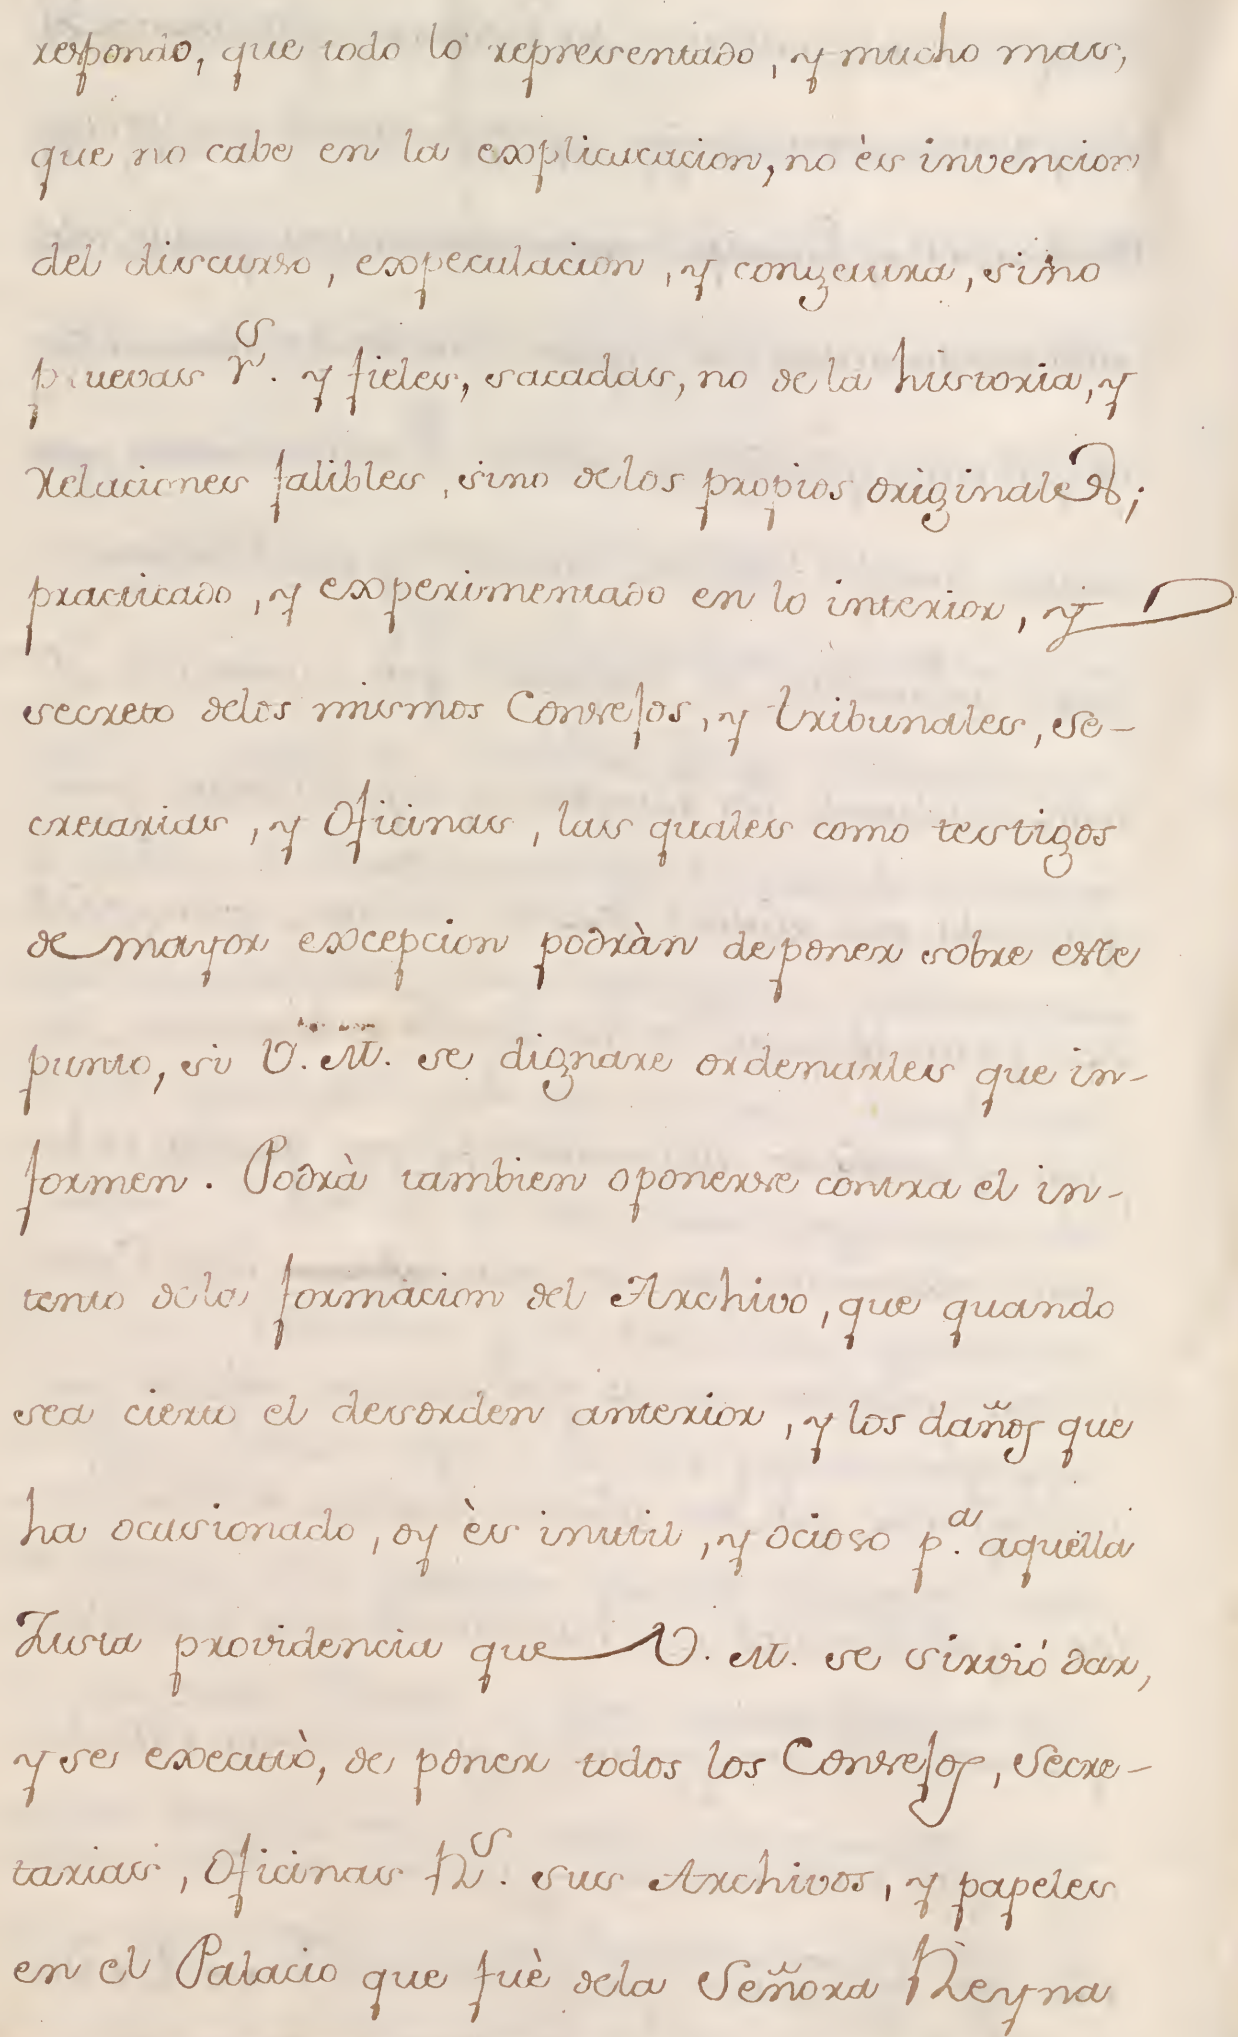 respondo, que todo lo representado, y mucho mas,
que no cabe en la explicacacion, no ès invencion
del discurso, expeculacion, y congetura, sino
pruevas r.ˢ y fieles, sacadas, no de la historia, y
Relaciones falibles, sino delos propios originales;
practicado, y experimentado en lo interior, y
secreto delos mismos Consejos, y tribunales, Se-
cretarias, y Oficinas, las quales como testigos
de mayor excepcion podràn deponer sobre este
punto, si V. M. se dignare ordenarles que in-
formen. Podrà tambien oponerse contra el in-
tento dela formacion del Archivo, que quando
sea cierto el desorden anterior, y los daños que
ha ocasionado, oy ès inutil, y ocioso p.ᵃ aquella
Justa providencia que V. M. se sirviò dar,
y se executò, de poner todos los Consejos, Secre-
tarias, Oficinas R.ˢ sus Archivos, y papeles
en el Palacio que fuè dela Señora Reyna